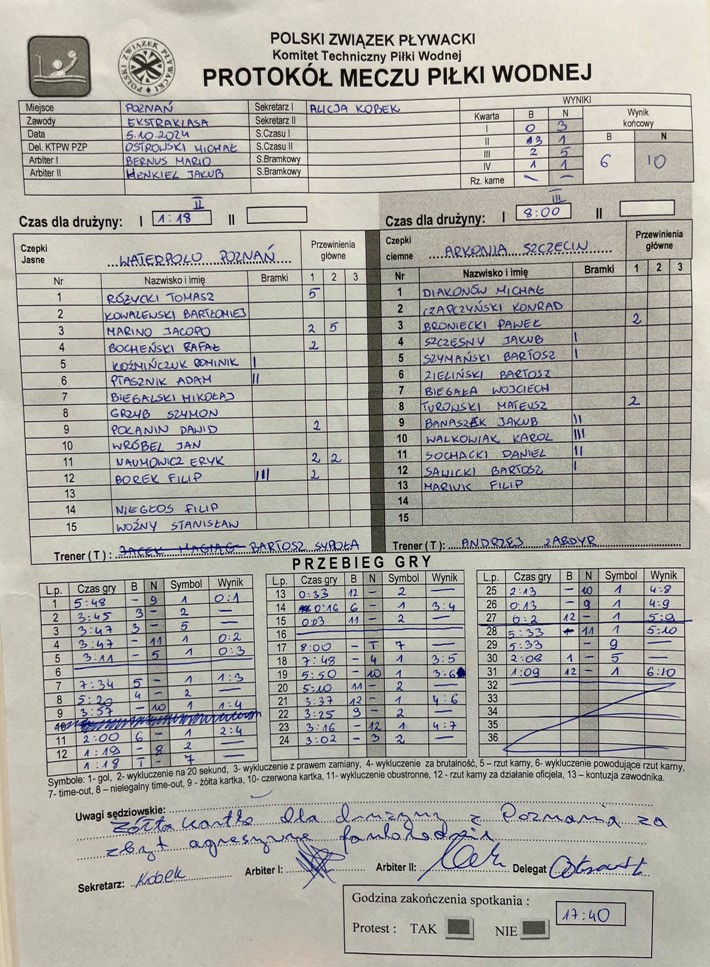 POLSKI ZWIĄZEK PŁYWACKI
Komitet Techniczny Piłki Wodnej
PROTOKÓŁ MECZU PIŁKI WODNEJ
POLSKI ZWIĄZEK PŁYWACKI
WYNIKI
Miejsce POZNAŃ Sekretarz I ALICJA KOBEK Kwarta B N Wynik końcowy
Zawody EKSTRAKLASA Sekretarz II I 0 3 B N
Data 5.10.2024 S.Czasu I II 3 1 6 10
Del. KTPW PZP OSTROWSKI MICHAŁ S.Czasu II III 2 5
Arbiter I BERNUS MARIO S.Bramkowy IV 1 1
Arbiter II HENKIEL JAKUB S.Bramkowy Rz. karne – –
II
Czas dla drużyny: I 1:18 II
III
Czas dla drużyny: I 8:00 II
Czepki Jasne WATERPOLO POZNAŃ Przewinienia główne
Nr Nazwisko i imię Bramki 1 2 3
1 RÓŻYCKI TOMASZ 5
2 KOWALEWSKI BARTŁOMIEJ
3 MARINO JACOPO 2 5
4 BOCHEŃSKI RAFAŁ 2
5 KOŹMIŃCZUK DOMINIK I
6 PTASZNIK ADAM II
7 BIEGALSKI MIKOŁAJ
8 GRZYB SZYMON
9 POLANIN DAWID 2
10 WRÓBEL JAN
11 NAUMOWICZ ERYK 2 2
12 BOREK FILIP III 2
13
14 NIEGŁOS FILIP
15 WOŹNY STANISŁAW
Trener ( T ) : BARTOSZ
Czepki ciemne ARKONIA SZCZECIN Przewinienia główne
Nr Nazwisko i imię Bramki 1 2 3
1 DIAKONÓW MICHAŁ
2 CZAPCZYŃSKI KONRAD
3 BRONIECKI PAWEŁ 2
4 SZCZĘSNY JAKUB I
5 SZYMAŃSKI BARTOSZ I
6 ZIELIŃSKI BARTOSZ
7 BIEGAŁA WOJCIECH
8 TUROWSKI MATEUSZ 2
9 BANASZAK JAKUB II
10 WALKOWIAK KAROL III
11 SOCHACKI DANIEL II
12 SAWICKI BARTOSZ I
13 FILIP
14
15
Trener ( T ) : ANDRZEJ
PRZEBIEG GRY
L.p. Czas gry B N Symbol Wynik
1 5:48 – 9 1 0:1
2 3:45 3 – 2 —
3 3:47 3 – 5 —
4 3:47 – 11 1 0:2
5 3:11 – 5 1 0:3
6
7 7:34 5 – 1 1:3
8 5:20 4 – 2 —
9 3:57 – 10 1 1:4
10
11 2:00 6 – 1 2:4
12 1:19 – 8 2 —
1:18 T – 7 —
L.p. Czas gry B N Symbol Wynik
13 0:33 12 – 2 —
14 0:16 6 – 1 3:4
15 0:03 11 – 2 —
16
17 8:00 – T 7 —
18 7:48 – 4 1 3:5
19 5:50 – 10 1 3:6
20 5:10 11 – 2 —
21 3:37 12 – 1 4:6
22 3:25 9 – 2 —
23 3:16 – 12 1 4:7
24 3:02 – 3 2 —
L.p. Czas gry B N Symbol Wynik
25 2:13 – 10 1 4:8
26 0:13 – 9 1 4:9
27 0:2 12 – 1 5:9
28 5:33 – 11 1 5:10
29 5:33 – 9 —
30 2:08 1 – 5 —
31 1:09 12 – 1 6:10
32
33
34
35
36
Symbole: 1- gol, 2- wykluczenie na 20 sekund, 3- wykluczenie z prawem zamiany, 4- wykluczenie za brutalność, 5 – rzut karny, 6- wykluczenie powodujące rzut karny,
7- time-out, 8 – nielegalny time-out, 9 - żółta kartka, 10- czerwona kartka, 11- wykluczenie obustronne, 12 - rzut karny za działanie oficjela, 13 – kontuzja zawodnika.
Uwagi sędziowskie:
Żółta kartka dla drużyny z Poznania za
zbyt agresywne
Sekretarz: Kobek Arbiter I: Arbiter II: Delegat
Godzina zakończenia spotkania : 17:40
Protest : TAK NIE